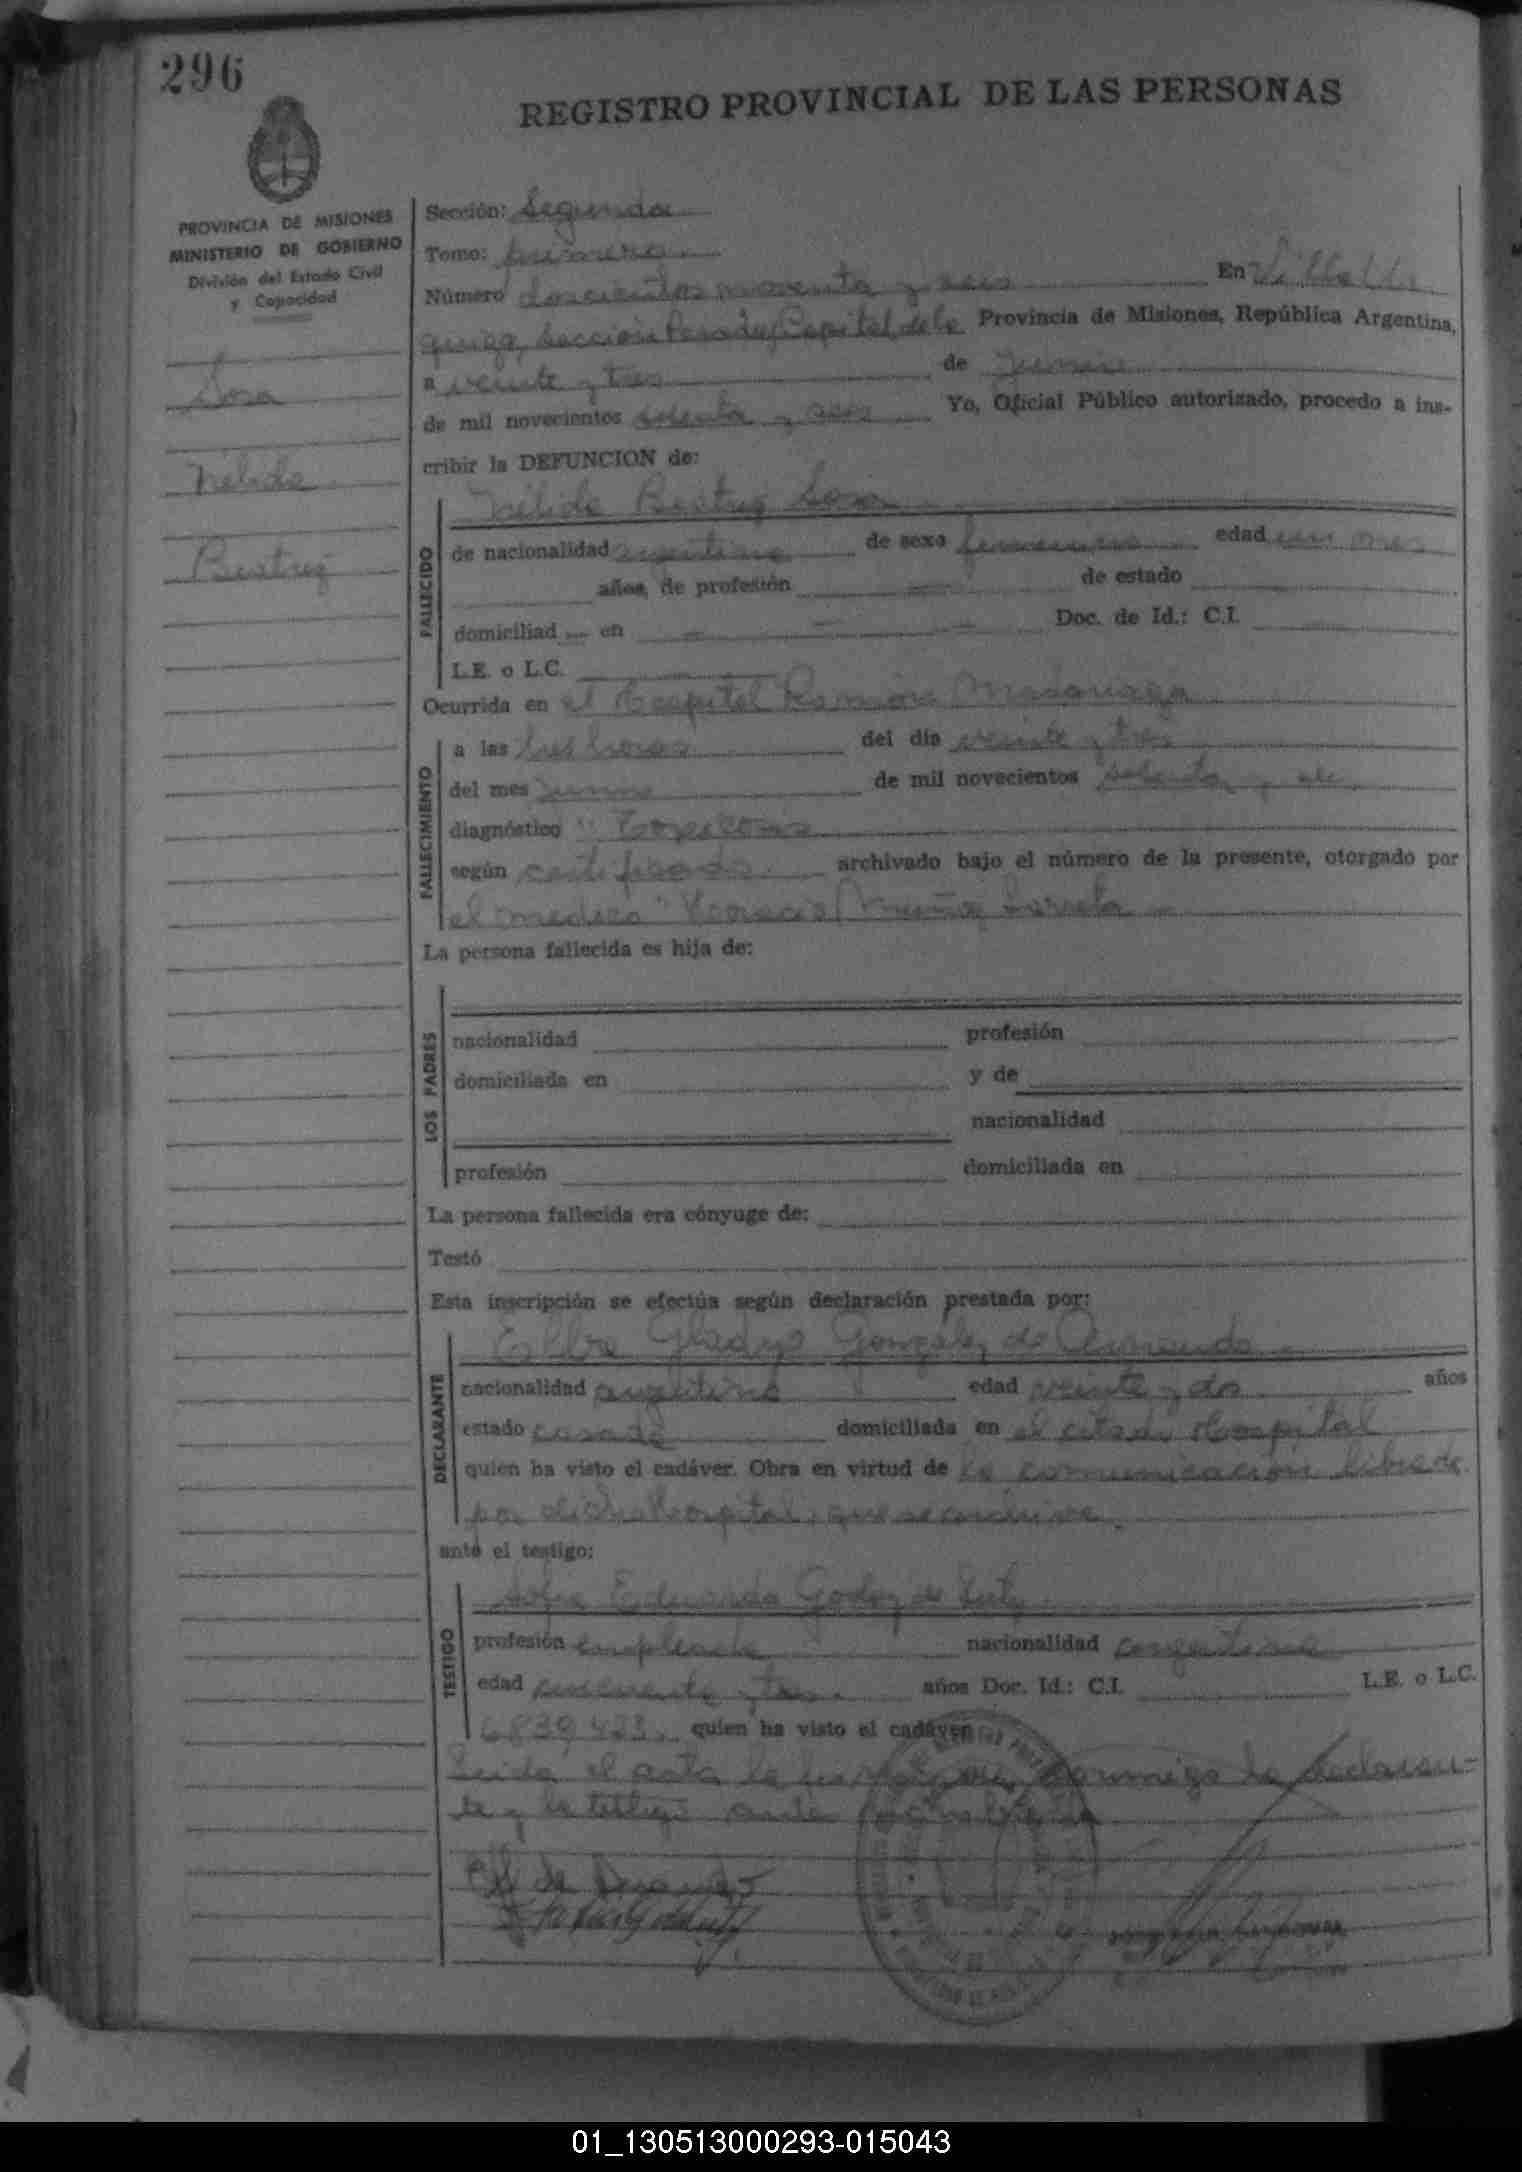 296
REGISTRO PROVINCIAL DE LAS PERSONAS
PROVINCIA DE MISIONES
MINISTERIO DE GOBIERNO
División del Estado Civil
y Capacidad
Sosa
Nélida
Beatriz
Sección: Segunda
Tomo: primero
Número doscientos noventa y seis En Villa Ur
quiza, Sección Posadas Capital de la Provincia de Misiones, República Argentina,
a veinte y tres de Junio
de mil novecientos y seis Yo, Oficial Público autorizado, procedo a ins-
cribir la DEFUNCION de:
FALLECIDO
Nélida Beatriz Sosa
de nacionalidad argentina de sexo femenino edad un mes
años, de profesión — de estado
domiciliad — en — — — Doc. de Id.: C.I.
L.E. o L.C.
Ocurrida en el Hospital Ramón Madariaga
FALLECIMIENTO
a las tres horas del día veinte y tres
del mes Junio de mil novecientos
diagnóstico "Toxicosis
según certificado archivado bajo el número de la presente, otorgado por
el médico "Horacio Muñoz Larreta
La persona fallecida es hija de:
LOS PADRES
nacionalidad profesión
domiciliada en y de
nacionalidad
profesión domiciliada en
La persona fallecida era cónyuge de:
Testó
Esta inscripción se efectúa según declaración prestada por:
DECLARANTE
Gladys González de
nacionalidad argentina edad veinte y dos años
estado casada domiciliada en el citado Hospital
quien ha visto el cadáver. Obra en virtud de la comunicación librada
por dicho Hospital, que se archiva.
ante el testigo:
TESTIGO
Eduarda Godoy de
profesión empleada nacionalidad argentina
edad cincuenta y tres años Doc. Id.: C.I. L.E. o L.C.
6839,423. quien ha visto el cadáver
Leida el acta la conmigo la declaran-
te y la testigo ante
01_130513000293-015043